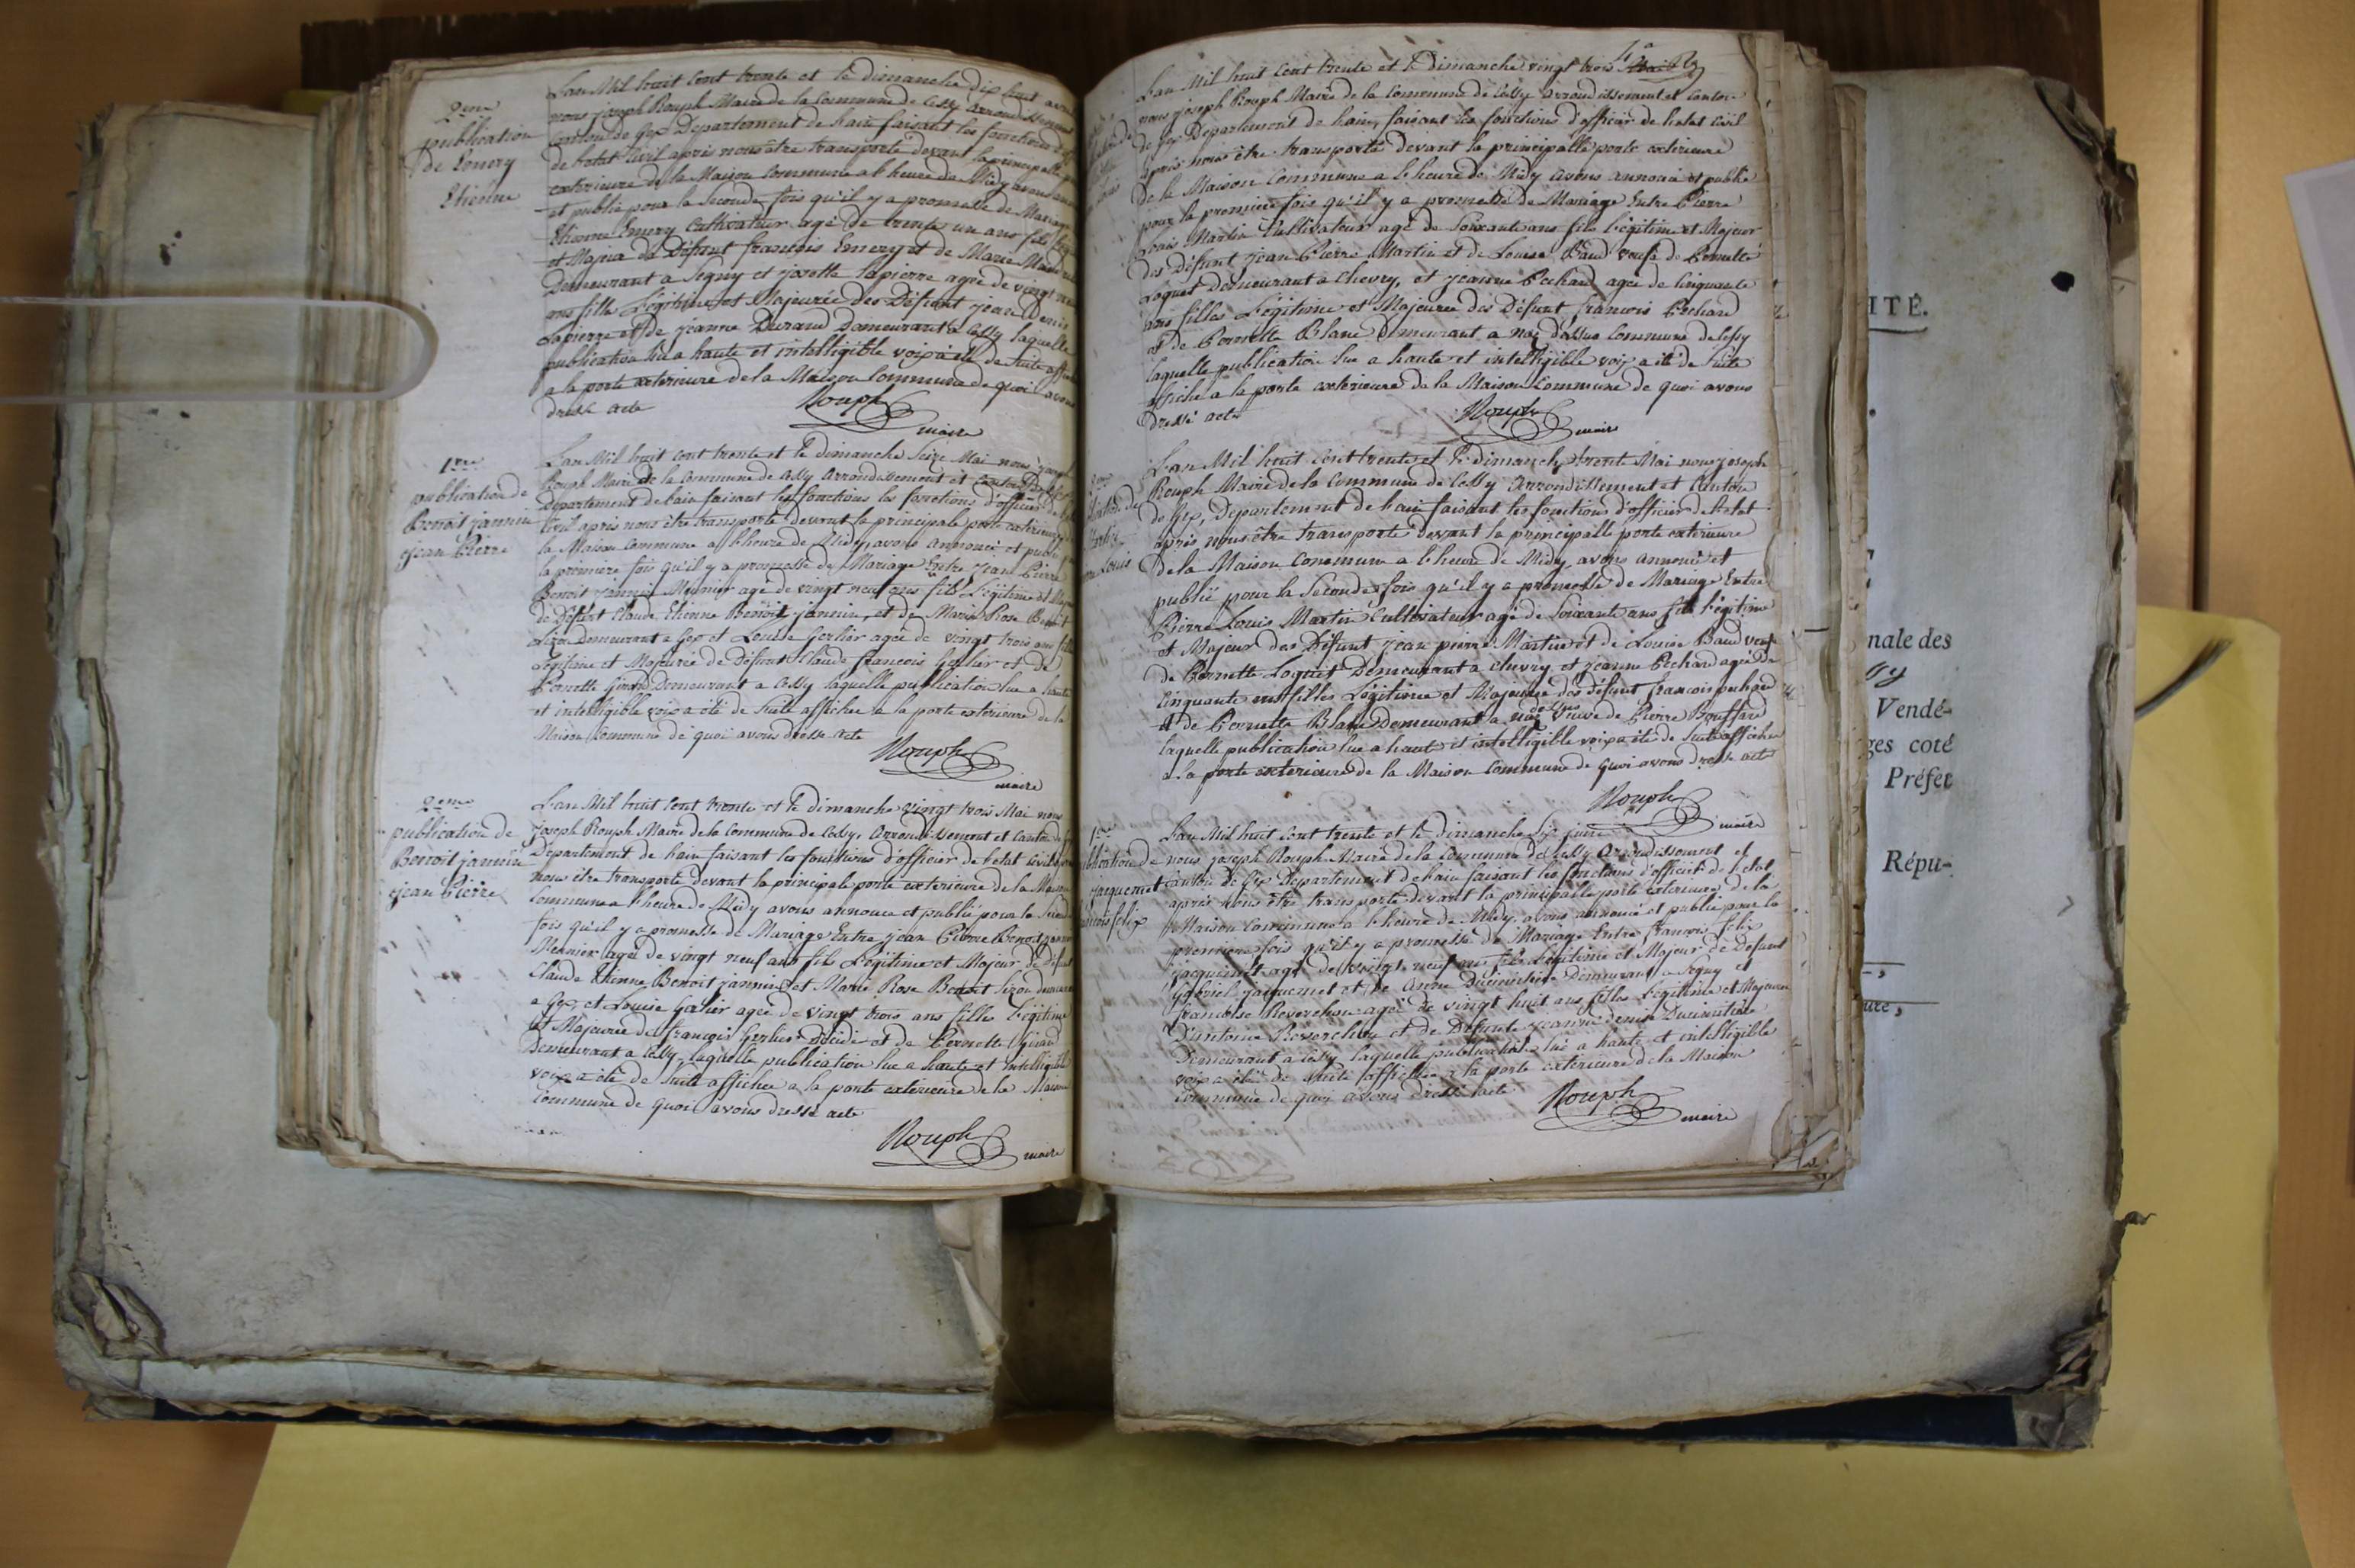 2eme
publication
de Emery
Etienne
L'an Mil huit Cent trente et le dimanche dix huit avril
nous joseph Rouph Maire de la Commune de Cessy arrondissement
Canton de Gex Departement de hain faisant les fonctions
de l'etat Civil après nous être transporté devant la principalle
exterieure de la Maison Commune a l'heure de Midy avons
et publié pour la Seconde fois qu'il y a promesse de Mariage
Etienne Emery Cultivateur agé de trente un ans fils
et Majeur du Défunt françois Emery et de Marie
Demeurant a Segny et josette Lapierre agée de vingt
ans fille Légitime et Majeurée des Défunt jean Denis
Lapierre et de jeanne Durand Demeurant a Cessy laquelle
publication lue a haute et intelligible voix a été de Suite
a la porte exterieure de la Maison Commune de quoi avons
dressé acte
Rouph
maire
1ere
publication de
Benoit jannin
jean Pierre
L'an Mil huit Cent trente et le dimanche Seize Mai nous
Rouph Maire de la Commune de Cessy Arrondissement et Canton de Gex
Departement de hain faisant les fonctions les fonctions d'officier de
Civil après nous être transporté devant la principale porte exterieure
la Maison Commune a l'heure de Midy, avons annoncé et publié
la premiere fois qu'il y a promesse de Mariage Entre jean Pierre
Benoit jannin Meunier agé de vingt neuf ans fils Légitime et
de Défunt Claude Etienne Benoit jannin, et de Marie Rose Benoit
Lizon Demeurant a Gex et Louise Gerlier agée de vingt trois ans
Légitime et Majeurée de Défunt Claude francois Gerlier et de
Pernette Girard Demeurant a Cessy laquelle publication lue a haute
et intelligible voix a été de Suite affichee a la porte exterieure de la
Maison Commune de quoi avons dressé acte
Rouph
maire
2eme
publication de
Benoit jannin
jean Pierre
L'an Mil huit Cent trente et le dimanche vingt trois Mai nous
joseph Rouph Maire de la Commune de Cessy, Arrondissement et Canton de
Departement de hain faisant les fonctions d'officier de l'etat Civil
nous être transporté devant la principale porte exterieure de la Maison
Commune a l'heure de Midy avons annoncé et publié pour la
fois qu'il y a promesse de Mariage Entre jean Pierre Benoit jannin
Meunier agé de vingt neuf ans fils Légitime et Majeur de
Claude Etienne Benoit jannin et Marie Rose Benoit Lizon
a Gex, et Louise Gerlier agée de vingt trois ans filles Légitime
et Majeurée de françois Gerlier décédé et de Pernette Girard
Demeurant a Cessy, laquelle publication lue a haute et Intelligible
voix a été de Suite affichee a la porte exterieure de la Maison
Commune de quoi avons dressé acte
Rouph
maire
L'an Mil huit Cent trente et le Dimanche vingt trois Mai
nous joseph Rouph Maire de la Commune de Cessy arrondissement et Canton
de Gex Departement de hain, faisant les fonctions d'officier de l'etat Civil
après nous être transporté devant la principalle porte exterieure
de la Maison Commune a l'heure de Midy avons annoncé et publié
pour la premiere fois qu'il y a promesse de Mariage Entre Pierre
Louis Martin Cultivateur agé de Soixante ans fils légitime et Majeur
des Défunt jean Pierre Martin et de Louise Baud veuf de Pernette
Loquet demeurant a Chevry, et jeanne Pechard agée de Cinquante
ans filles Légitime et Majeurée des Défunt francois Pechard
et de Pernette Blanc Demeurant a naz dessus Commune de Cessy
laquelle publication lue a haute et intelligible voix a été de Suite
affiché a la porte exterieure de la Maison Commune de quoi avons
dressé acte
Rouph
maire
Louis
L'an Mil huit Cent trente et le dimanche trente Mai nous joseph
Rouph Maire de la Commune de Cessy Arrondissement et Canton
de Gex, Departement de hain faisant les fonctions d'officier de l'etat
après nous être transporté devant la principalle porte exterieure
de la Maison Commune a l'heure de Midy, avons annoncé et
publié pour la Seconde fois qu'il y a promesse de Mariage Entre
Pierre Louis Martin Cultivateur agé de Soixante ans fils Légitime
et Majeur des Défunt jean pierre Martin et de Louise Baud veuf
de Pernette Loquet Demeurant a Chevry et jeanne Pechard agée de
Cinquante ans filles Légitime et Majeurée des défunt francois pechard
et de Pernette Blanc Demeurant a naz dessus Veuve de Pierre Bouffard
laquelle publication lue a haute et intelligible voix a été de Suite affichee
a la porte exterieure de la Maison Commune de quoi avons dressé acte
Rouph
maire
1ere
jaquemet
felix
L'an Mil huit Cent trente et le dimanche Six juin
nous joseph Rouph Maire de la Commune de Cessy Arrondissement et
canton de Gex Departement de hain faisant les fonctions d'officier de l'etat
après nous être transporté devant la principalle porte exterieure de la
Maison Commune a l'heure de Midy, avons annoncé et publié pour la
premiere fois qu'il y a promesse de Mariage Entre françois felix
jaquemet agé de vingt neuf ans fils Légitime et Majeur de Défunt
Gabriel jaquemet et de Demeurant a Segny et
francoise Reverchon agée de vingt huit ans filles Légitime et Majeure
D'antoine Reverchon et de Défunte jeanne denise
Demeurant a Cessy laquelle publication lue a haute et intelligible
voix a été de Suite affichee a la porte exterieure de la Maison
Commune de quoi avons dressé acte
Rouph
maire
ITÉ.
nale des
Vendé-
ges coté
Préfet
Répu-